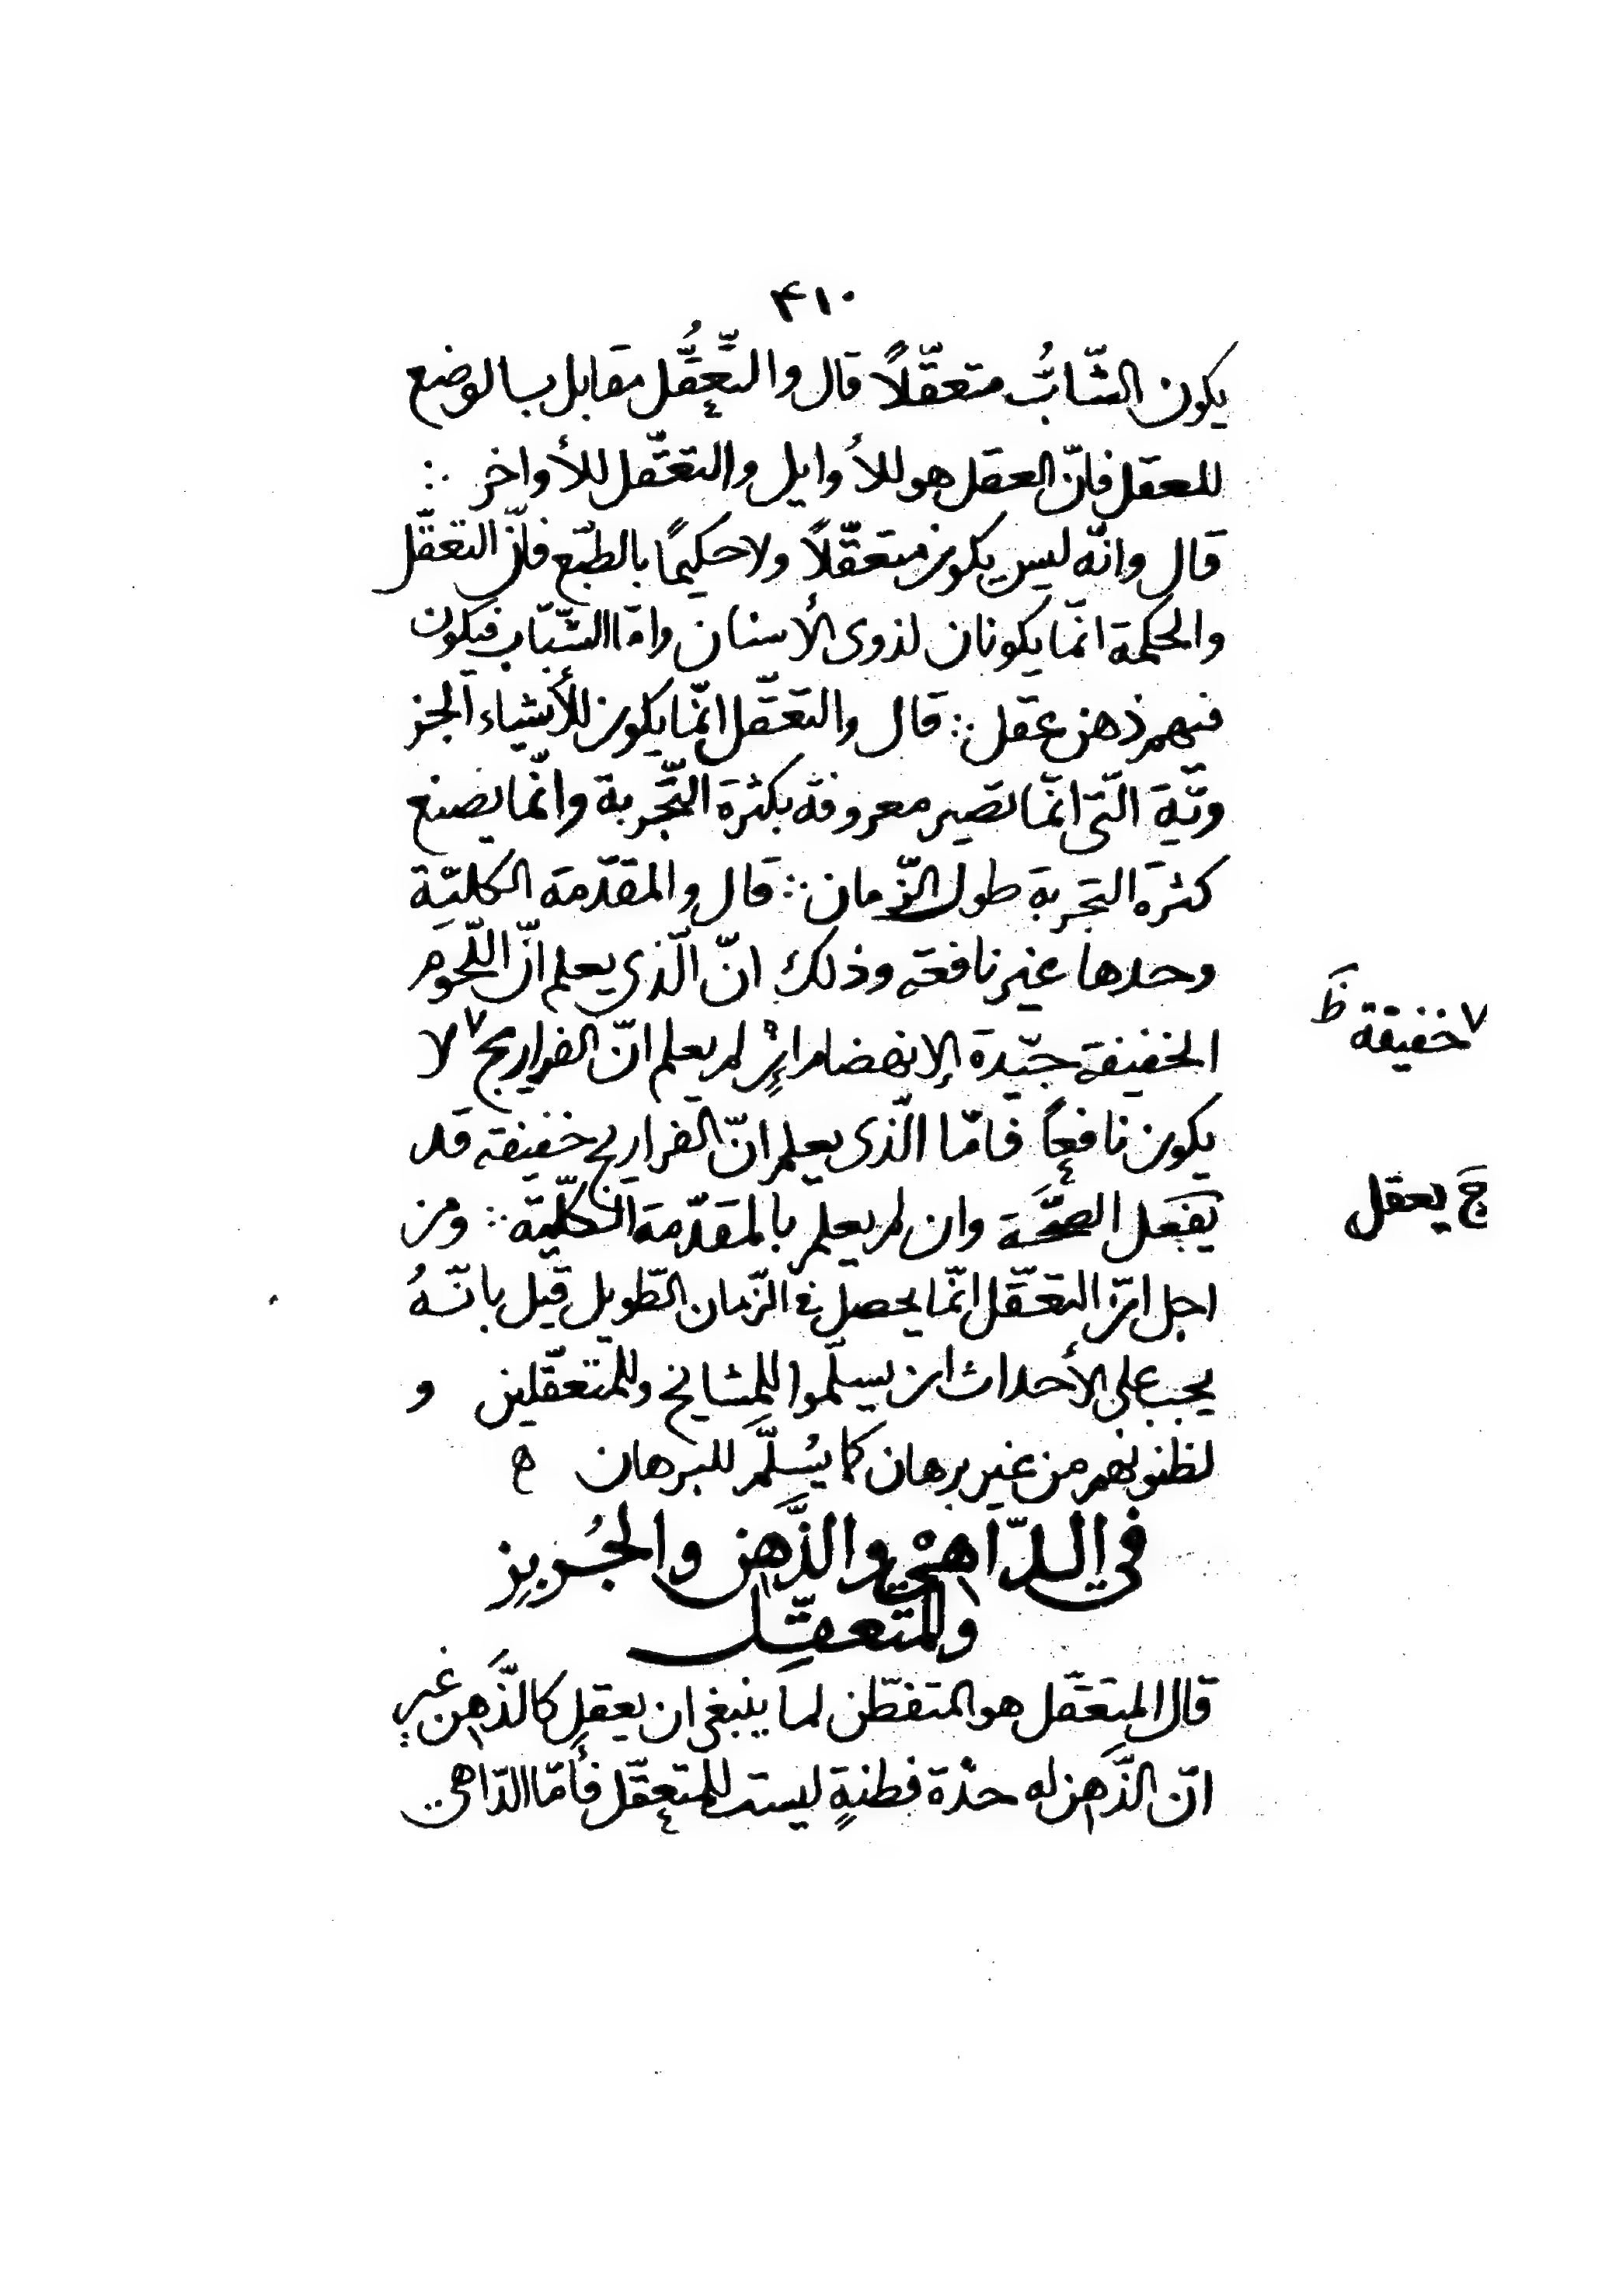 ۴۱۰
يكون الشّابُّ متعقّلاً قال والتَّعقُّل مقابل بالوضع
للعقل فانّ العقل هو للأوايل والتعقّل للأواخر ∴
قال وانّه ليس يكون متعقّلاً ولا حكيمًا بالطبّع فانّ التعقّل
والحكمة انّما يكونان لذوى الأسنان وامّا الشّباب فيكون
فيهم ذهن عقل ∴ قال والتعقّل انّما يكون للأشياء الجز
ويّة الّتى انّما تصير معروفة بكثرة التّجربة وانّما يصنع
كثرة التجربة طول الزّمان ∴ قال والمقدّمة الكلّيّة
وحدها غير نافعة وذلك انّ الّذى يعلم انّ اللّحوم
الخفيفة جيّدة الإنهضام إن لم يعلم انّ الفراريج ٧ لا
٧ خفيفة ظ
يكون نافعًا فامّا الّذى يعلم انّ الفراريج خفيفة قد
يفعل الصحّة وان لم يعلم بالمقدّمة الكلّيّة ∴ ومن
ج يعقل
اجل انّ التعقّل انّما يحصل فى الزّمان الطّويل قيل بانّهُ
يجب على الأحداث ان يسلّموا للمشايخ وللمتعقّلين و
لظنونهم من غير برهان كما يُسلَّم للبرهان ه
في الدّاهي والذَّهِن والجُربز
والمتعقّل
قال المتعقّل هو المتفطّن لما ينبغى ان يعقل كالذَّهِن غير
انّ الذَّهِن له حدّة فطنةٍ ليست للمتعقّل فأمّا الدّاهى